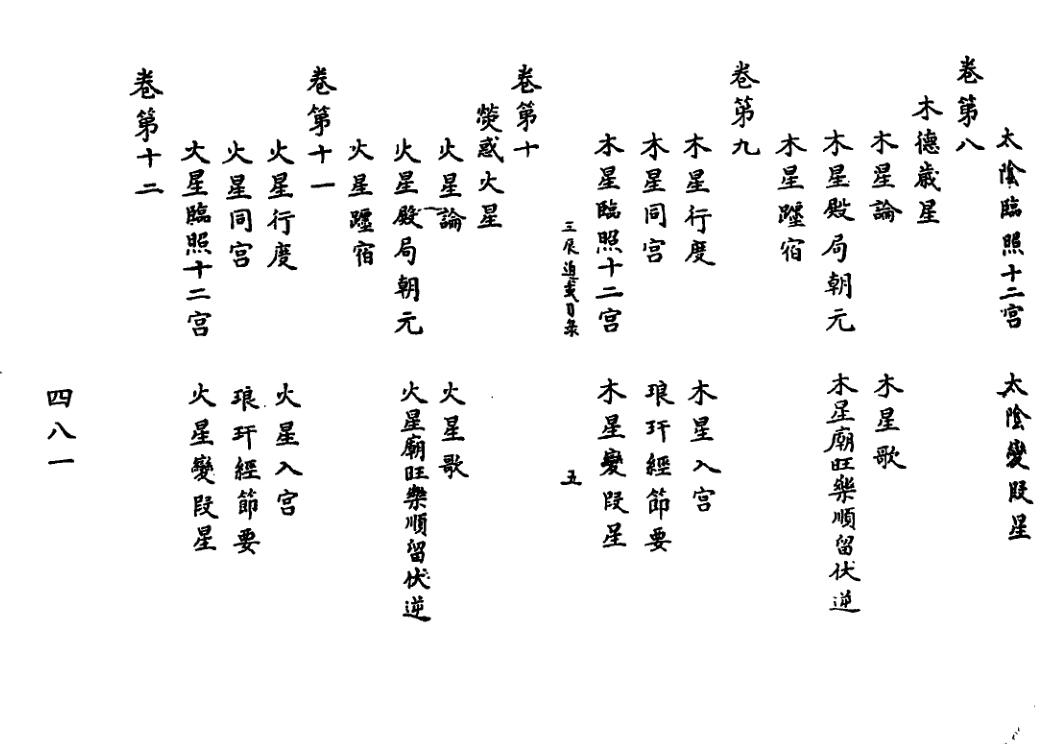 太陰臨照十二宮　太陰變段星
卷第八
木德歲星
木星論　木星歌
木星殿局朝元　木星廟旺樂順留伏逆
木星躔宿
卷第九
木星行度　木星入宮
木星同宮　琅玕經節要
木星臨照十二宮　木星變段星
三辰通載目錄　五
卷第十
熒惑火星
火星論　火星歌
火星殿局朝元　火星廟旺樂順留伏逆
火星躔宿
卷第十一
火星行度　火星入宮
火星同宮　琅玕經節要
火星臨照十二宮　火星變段星
卷第十二
四八一